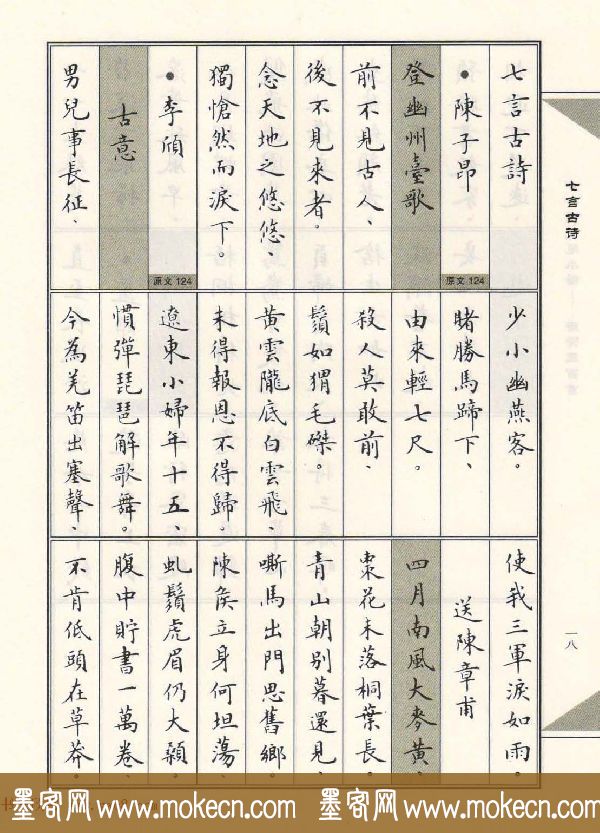 七言古诗
一八
七言古詩
• 陳子昂
原文 124
登幽州臺歌
前不見古人、
後不見來者。
念天地之悠悠、
獨愴然而淚下。
• 李頎
原文 124
古意
男兒事長征、
少小幽燕客。
賭勝馬蹄下、
由來輕七尺。
殺人莫敢前、
鬚如猬毛磔。
黃雲隴底白雲飛、
未得報恩不得歸。
遼東小婦年十五、
慣彈琵琶解歌舞。
今為羌笛出塞聲、
使我三軍淚如雨。
送陳章甫
四月南風大麥黃、
棗花未落桐葉長。
青山朝別暮還見、
嘶馬出門思舊鄉。
陳侯立身何坦蕩、
虬鬚虎眉仍大顙。
腹中貯書一萬卷、
不肯低頭在草莽。
墨客网 www.mokecn.com 墨客网 www.mokecn.com